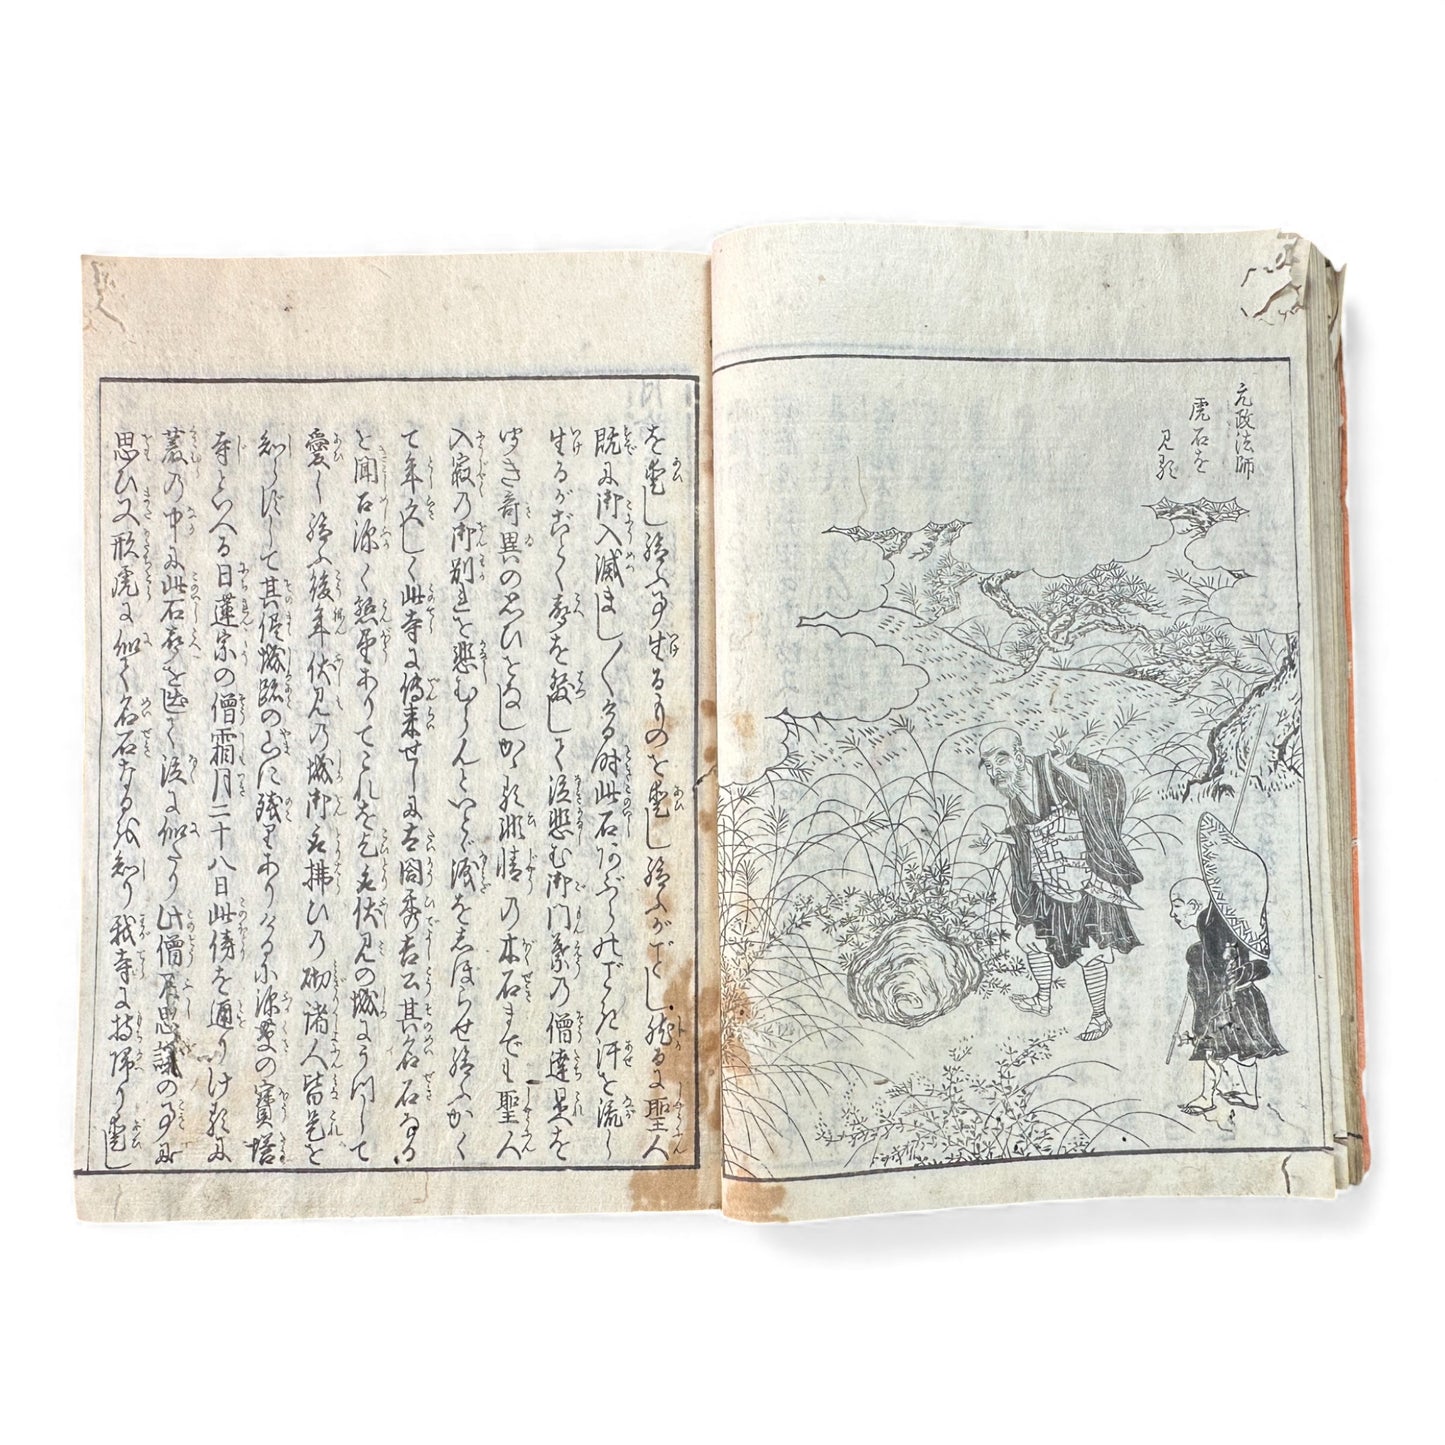 元政法師
虎石を
見る
を愛し給ふ事生るものを愛し給ふがごとし然るに聖人
既に御入滅まし〳〵ける時此石
汗を流し
生るがごとく声を発して泣悲む御門葉の僧達是を
奇異の思ひをなしかゝる非情の木石までも聖人
入寂の御別れを悲むらんといとゞ涙をしぼらせ給ふかく
て年久しく此寺に伝来せしに太閤秀吉公其名石なる
と聞召深く懇望ありてこれを乞ひ
伏見の城にうつして
愛し給ふ後年伏見の城御取払ひの砌諸人皆是を
知らずして其侭城跡の山に残りありける小深草の宝塔
寺といへる日蓮宗の僧霜月二十八日此傍を通りけるに
叢の中に此石声を出て泣に似たり此僧不思議の事に
思ひ又形虎に似て名石なるを知り我寺に持帰り愛し